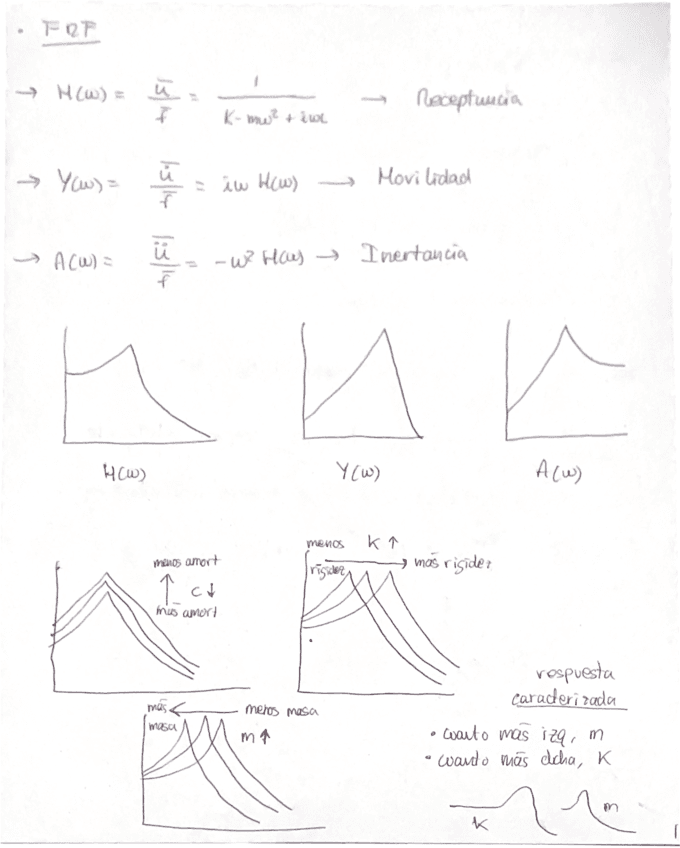 • FRF
→ H(ω) = ū/f̄ = 1/(K-mω² + iωc) → Receptancia
→ Y(ω) = u̇̄/f̄ = iω H(ω) → Movilidad
→ A(ω) = ǖ/f̄ = -ω² H(ω) → Inertancia
H(ω) Y(ω) A(ω)
menos amort
↑ C↓
más amort
menos K ↑
rigidez → más rigidez
más ← menos masa
masa m ↑
respuesta
caracterizada
• cuanto más izq, m
• cuando más dcha, K
K m